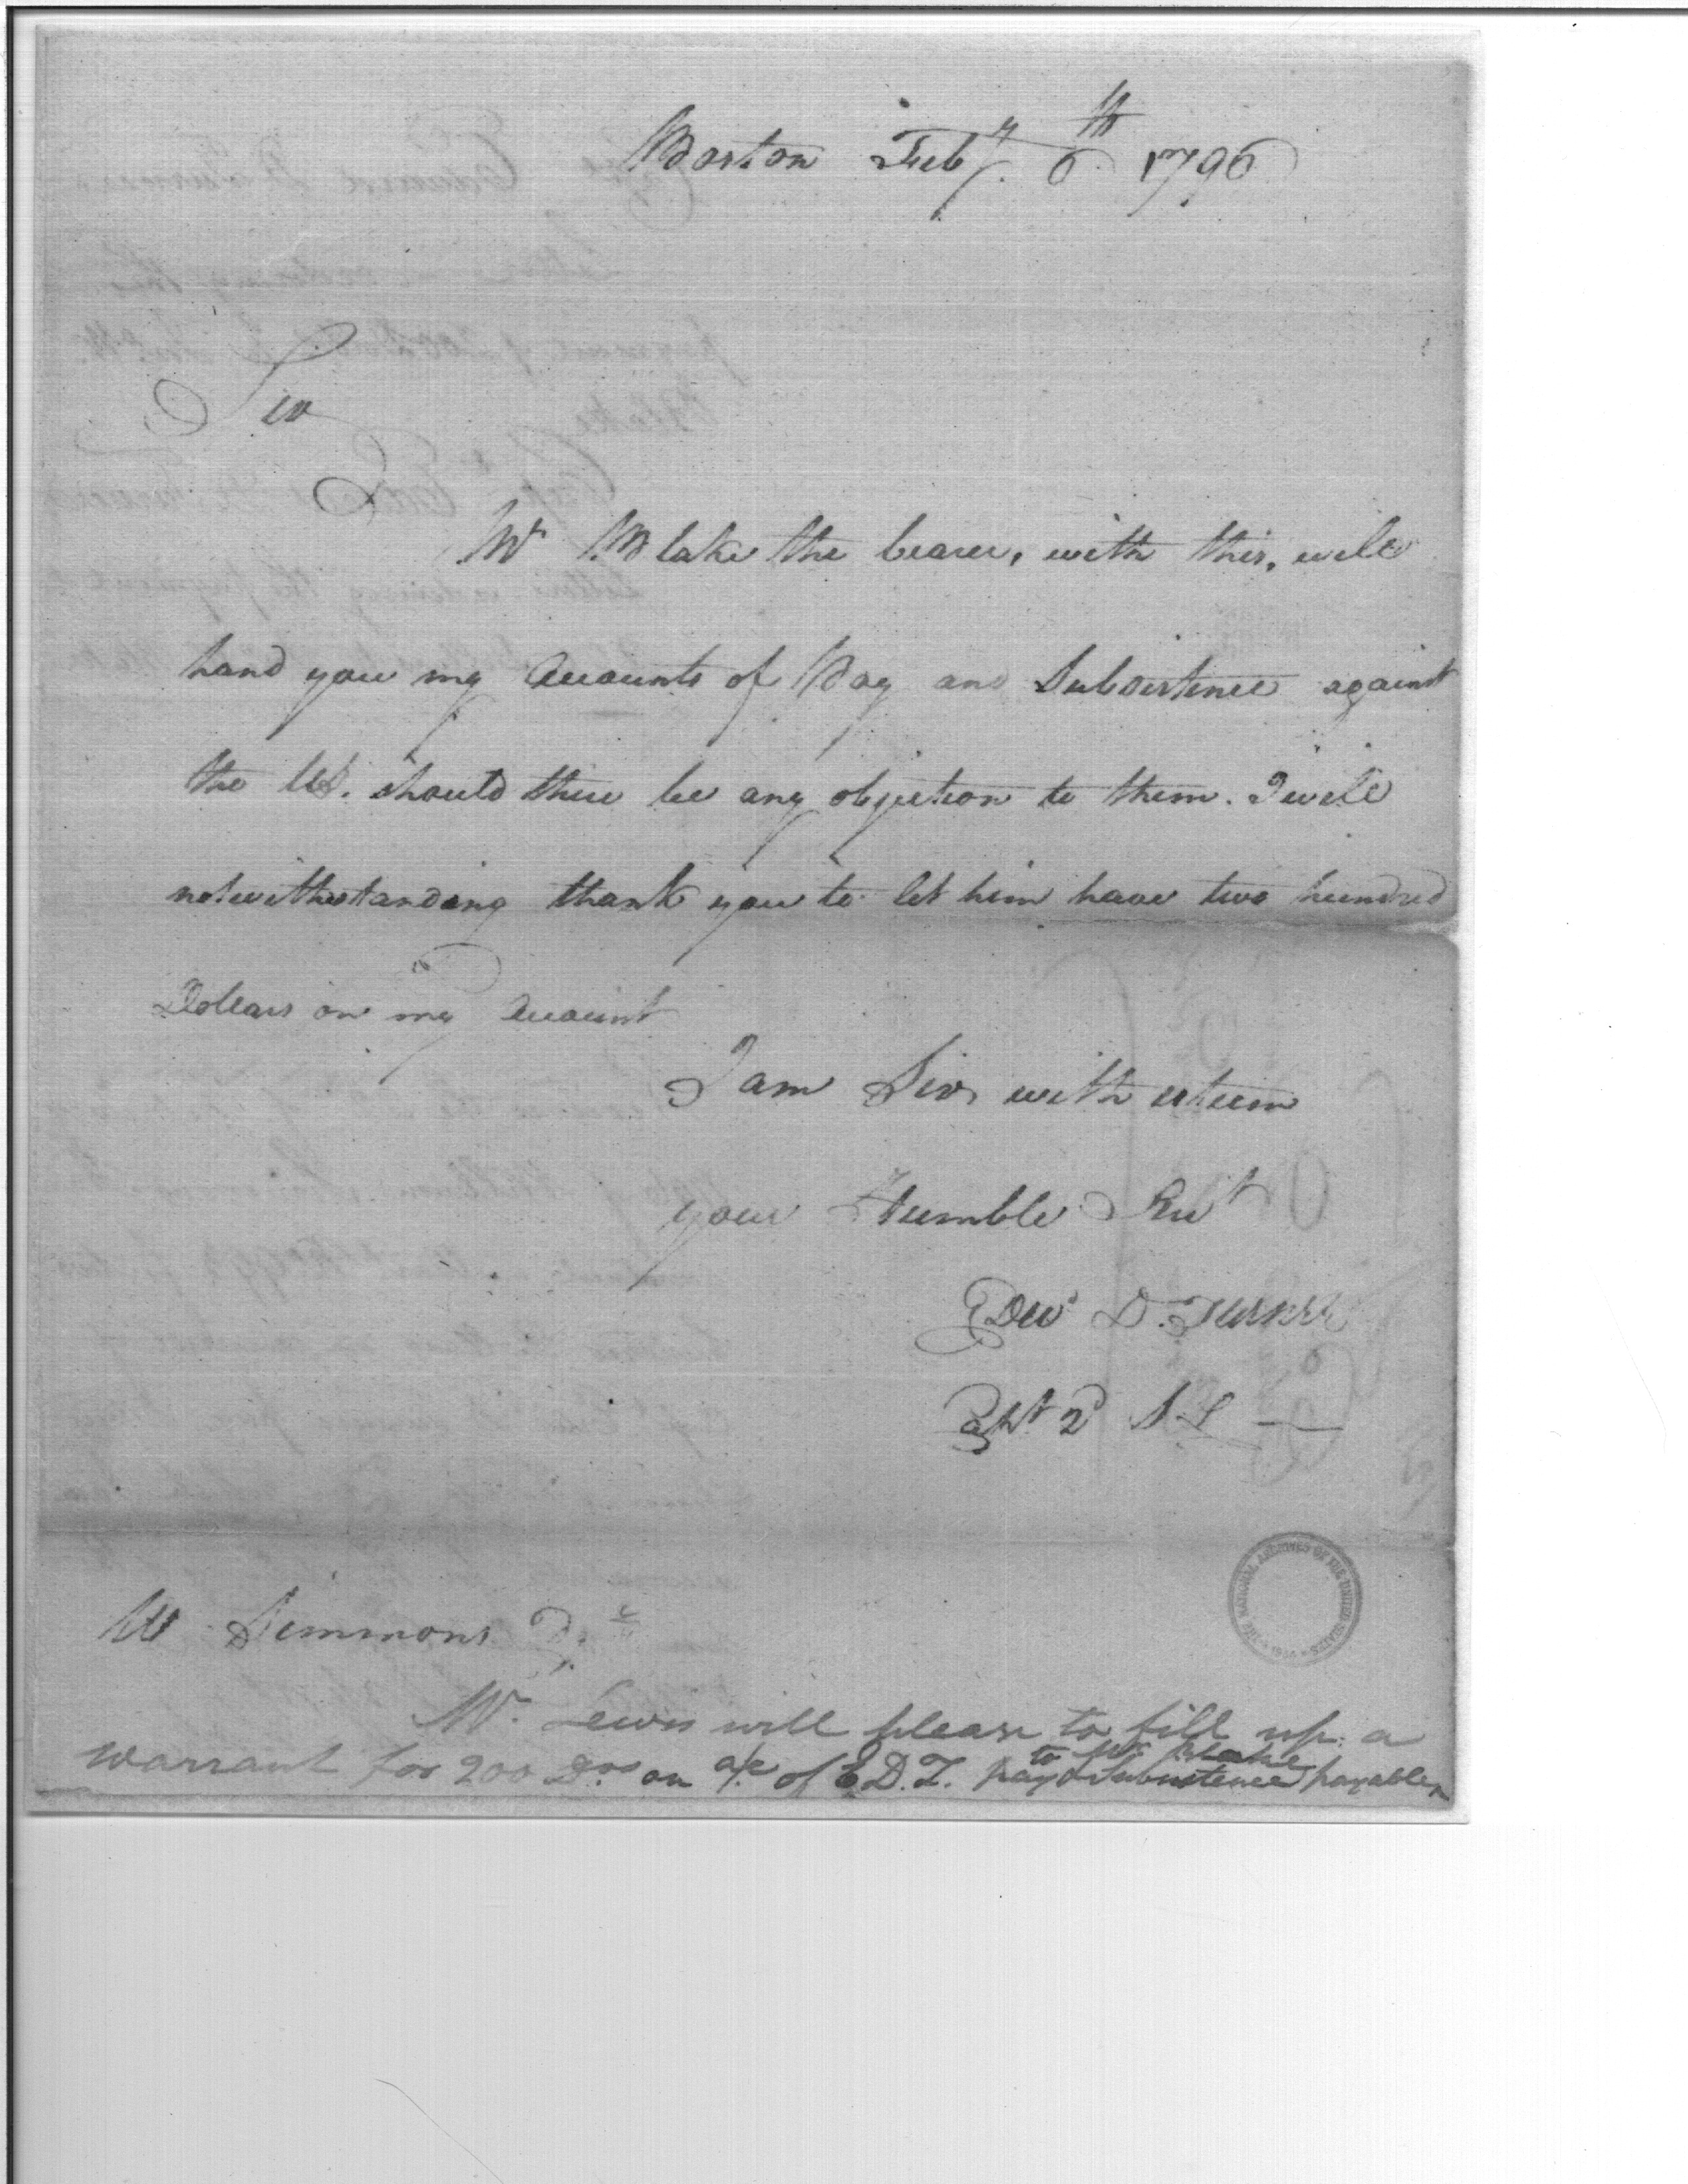 Boston Feby. 6th 1796
Sir
Mr Blake the bearer, with this, will
hand you my Accounts of Pay and Subsistence against
the US. should there be any objection to them. I will
notwithstanding thank you to let him have two hundred
Dollars on my Account
I am Sir with esteem
your Humble Sert
Edwd D. Turner
Capt 2d S L
W Simmons Esqr
Mr. Lewis will please to fill up a
warrant for 200 Drs on a/c of E.D.T. pay & Subsistence payable
to Mr Blake
THE NATIONAL ARCHIVES OF THE UNITED STATES